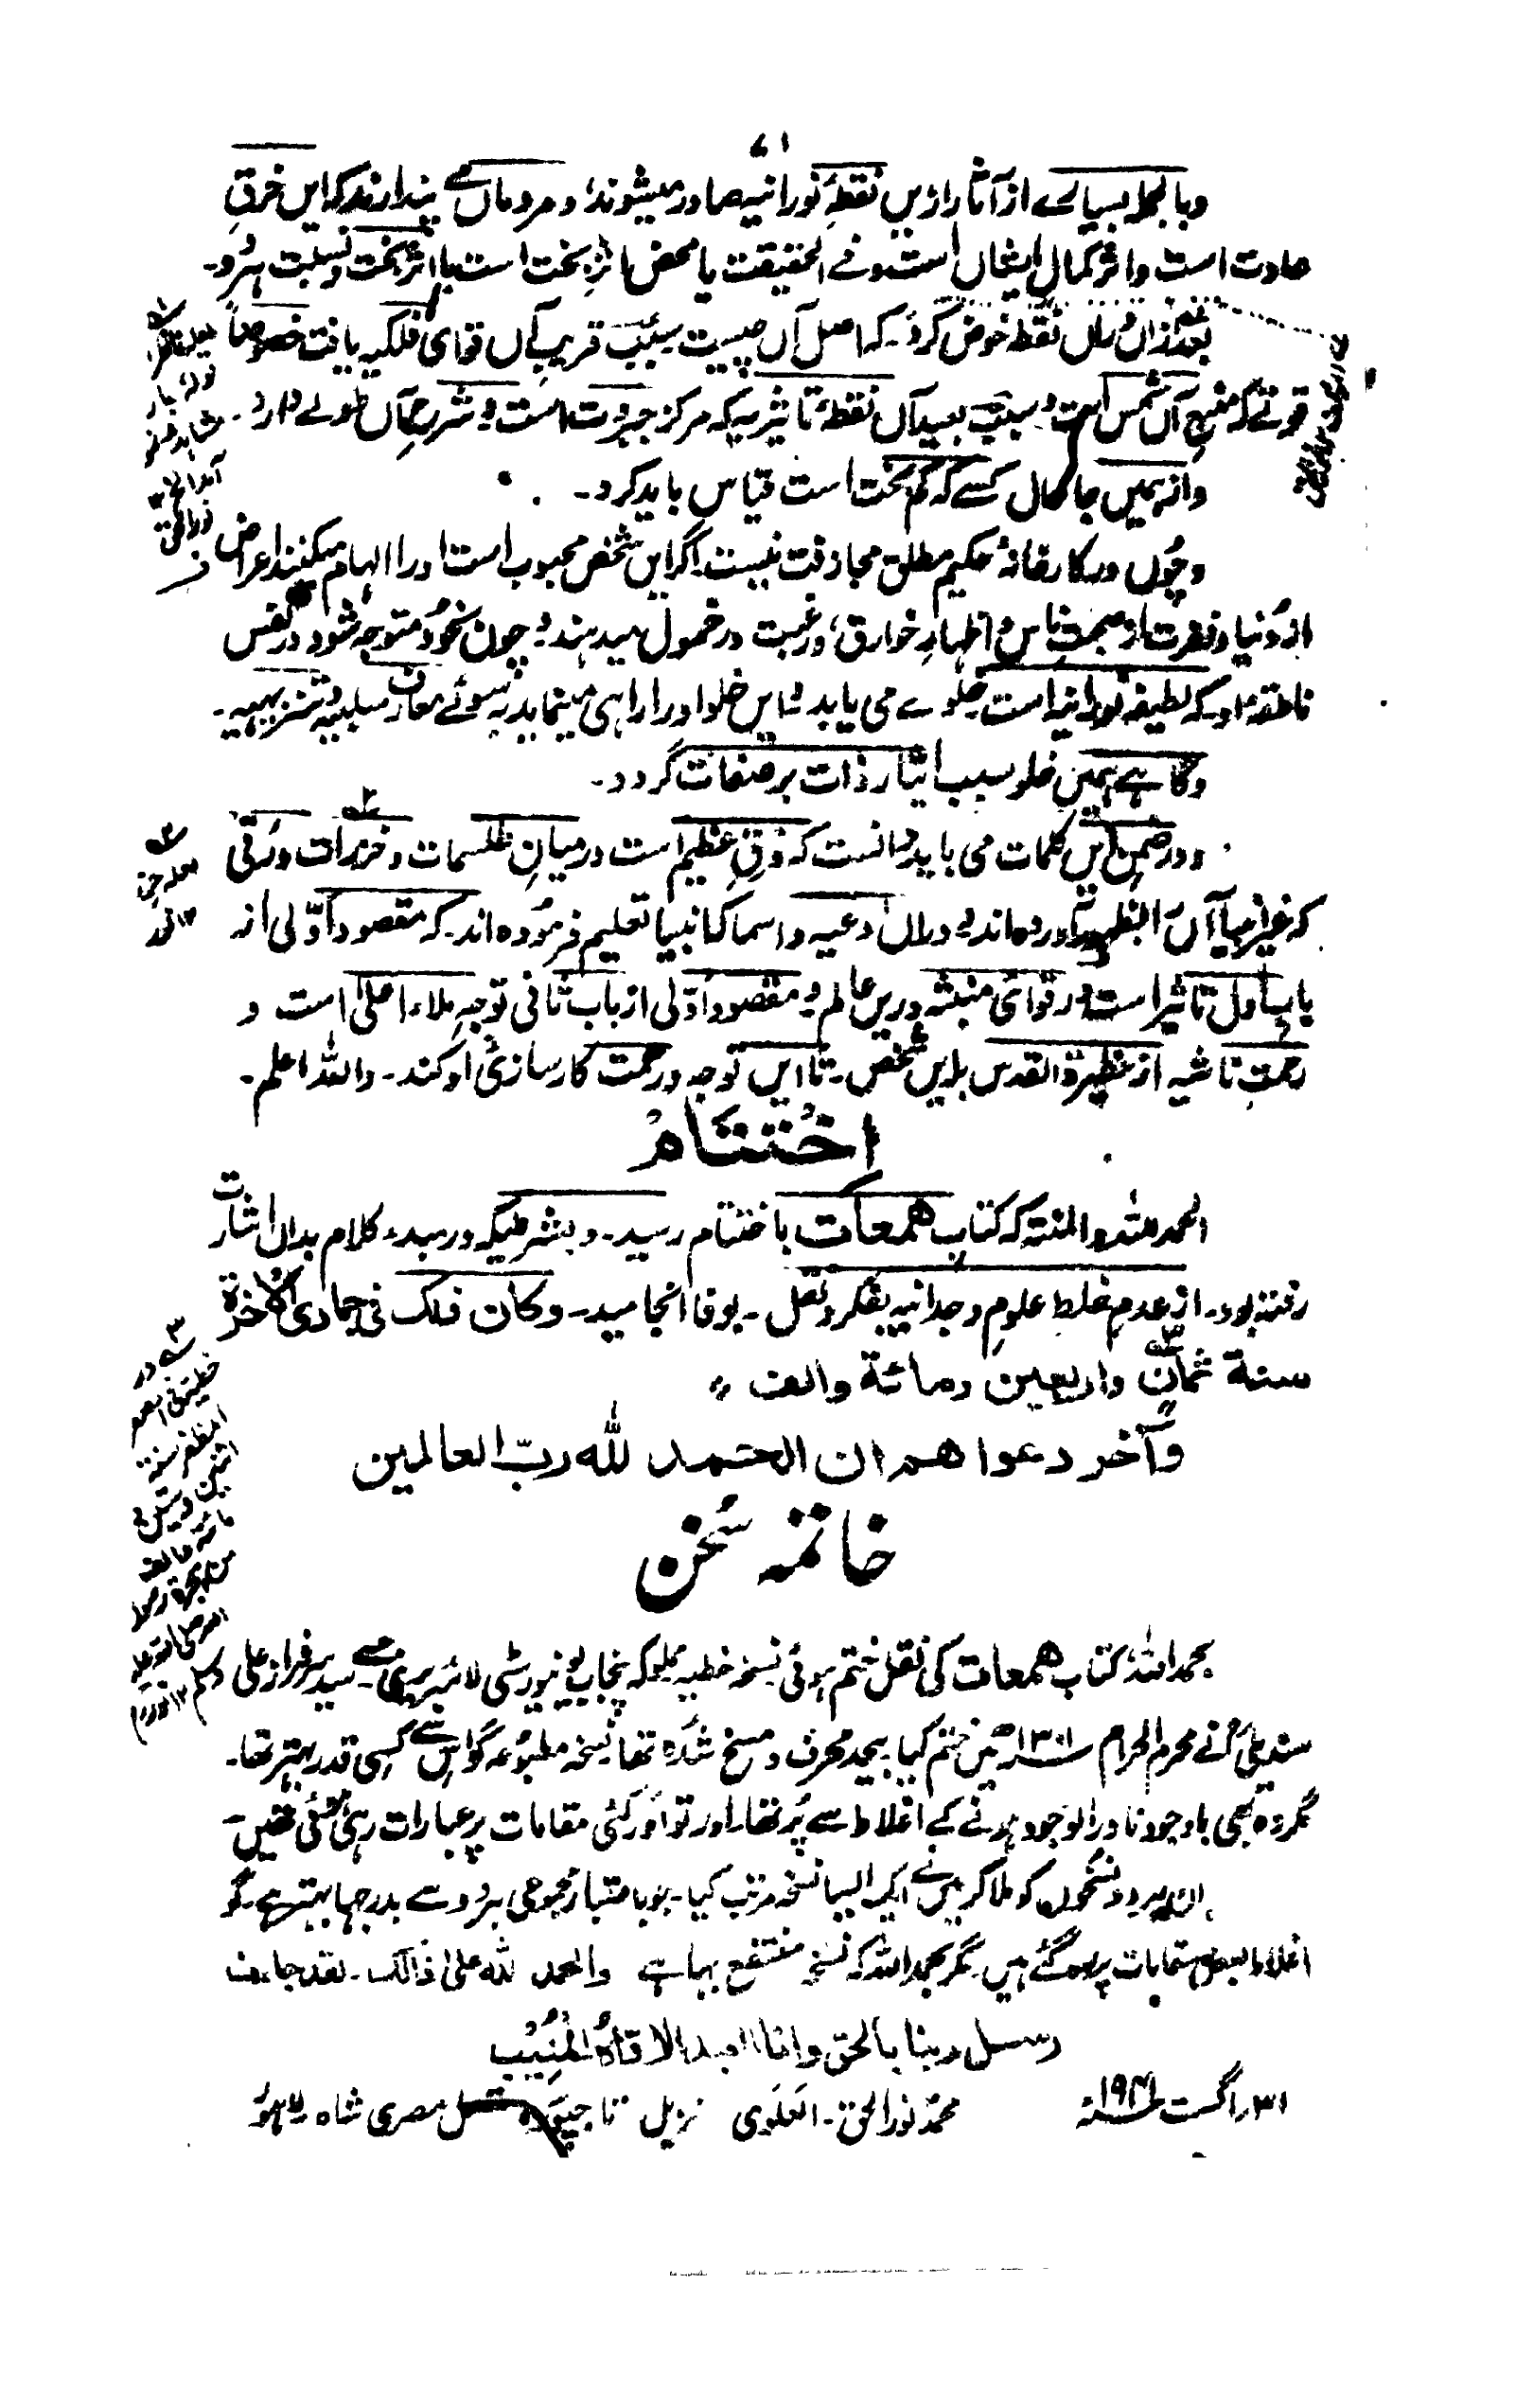 ۷۱
وبالجملہ بسیارے از آثار ازیں نقطۂ نورانیہ صادر میشوند، و مردماں مے پندارند کہ ایں خرقِ
عادت است و اثر کمال ایشاں است و فے الحقیقت یا محض اثرِ بخت است یا اثر بخت و نسبت ہر دو۔
بعد ازاں دراں نقطہ خوض کرد۔ کہ اصل آں چیست سبب قریب آں قوای فلکیہ یافت خصوصاً
قوتے کہ منبع آں شمس است و سبب بعید آں نقطۂ تاثیریہ کہ مرکز جبروت است و شرح آں طولے دارد۔
وازہمیں جا حال کسے کہ کم بخت است قیاس باید کرد۔
وچوں در کارخانۂ حکیم مطلق مجازفت نیست۔ اگر ایں شخص محبوب است اورا الہام میکنند اعراض
از دنیا و نفرت از صحبت ناس و اظہارِ خوارق، ورغبت در خمول میدہند و چون بخود متوجہ شود در نفس
ناطقہ او کہ لطیفہ نورانیہ است خلوے می یابد و ایں خلو اورا راہی مینماید بہ سوئے معارف سلبیہ و تنزیہیہ۔
وگاہے ہمیں خلو سبب ایثار ذات بر صفات گردد۔
ودر ضمن ایں کلمات می باید دانست کہ فرقِ عظیم است درمیانِ طلسمات و خرزات و رُقی
کہ غیر انبیا آں را بظہور آوردہ اند و دراں ادعیہ و اسما کہ انبیا تعلیم فرمودہ اند۔ کہ مقصود اوّلی از
باب اول تاثیر است در قوائی منبثہ دریں عالم و مقصود اوّلی از باب ثانی توجہِ ملاء اعلیٰ است و
رحمتِ ناشیہ از حظیرۃ القدس بایں شخص۔ تا ایں توجہ و رحمت کارسازئ او کند۔ واللہ اعلم۔
اختتام
الحمد للہ والمنتہ کہ کتاب ہمعات باختتام رسید۔ و بشرطیکہ در مبدء کلام بداں اشارت
رفتہ بود۔ از عدم خلط علومِ وجدانیہ بفکر و نقل۔ بوفا انجامید۔ وکان ذلک فی جمادی الاخرۃ
سنۃ ثمان واربعین ومائۃ والف
وآخر دعواھم ان الحمد للہ ربّ العالمین
خاتمہ سُخن
بحمد اللہ کتاب ہمعات کی نقل ختم ہوئی نسخہ خطیہ مملوکہ پنجاب یونیورسٹی لائبریری جسے سید سرفراز علی
سندیلی نے محرم الحرام ۱۳۰۱ھ میں ختم کیا بیحد محرف و مسخ شدہ تھا نسخہ مطبوعہ گو اس سے کسی قدر بہتر تھا۔
مگر وہ بھی باوجود نادر الوجود ہونے کے اغلاط سے پُر تھا۔ اور تو اور کئی مقامات پر عبارات رہ گئی تھیں۔
ان ہر دو نسخوں کو ملا کر میں نے ایک ایسا نسخہ مرتب کیا۔ جو باعتبار مجموعی ہر دو سے بدرجہا بہتر ہے۔ گو
اغلاط بعض مقامات پر رہ گئے ہیں۔ مگر بحمد اللہ کہ نسخہ منتفع بہا ہے والحمد للہ علیٰ ذالک۔ لقد جاءت
رسل ربنا بالحق وانا العبد الاوّاہ المُنِیْب
محمد نور الحق۔ العلوی نزیل تاجپورہ متصل مصری شاہ لاہور
۳۱ اگست ۱۹۴۱ء